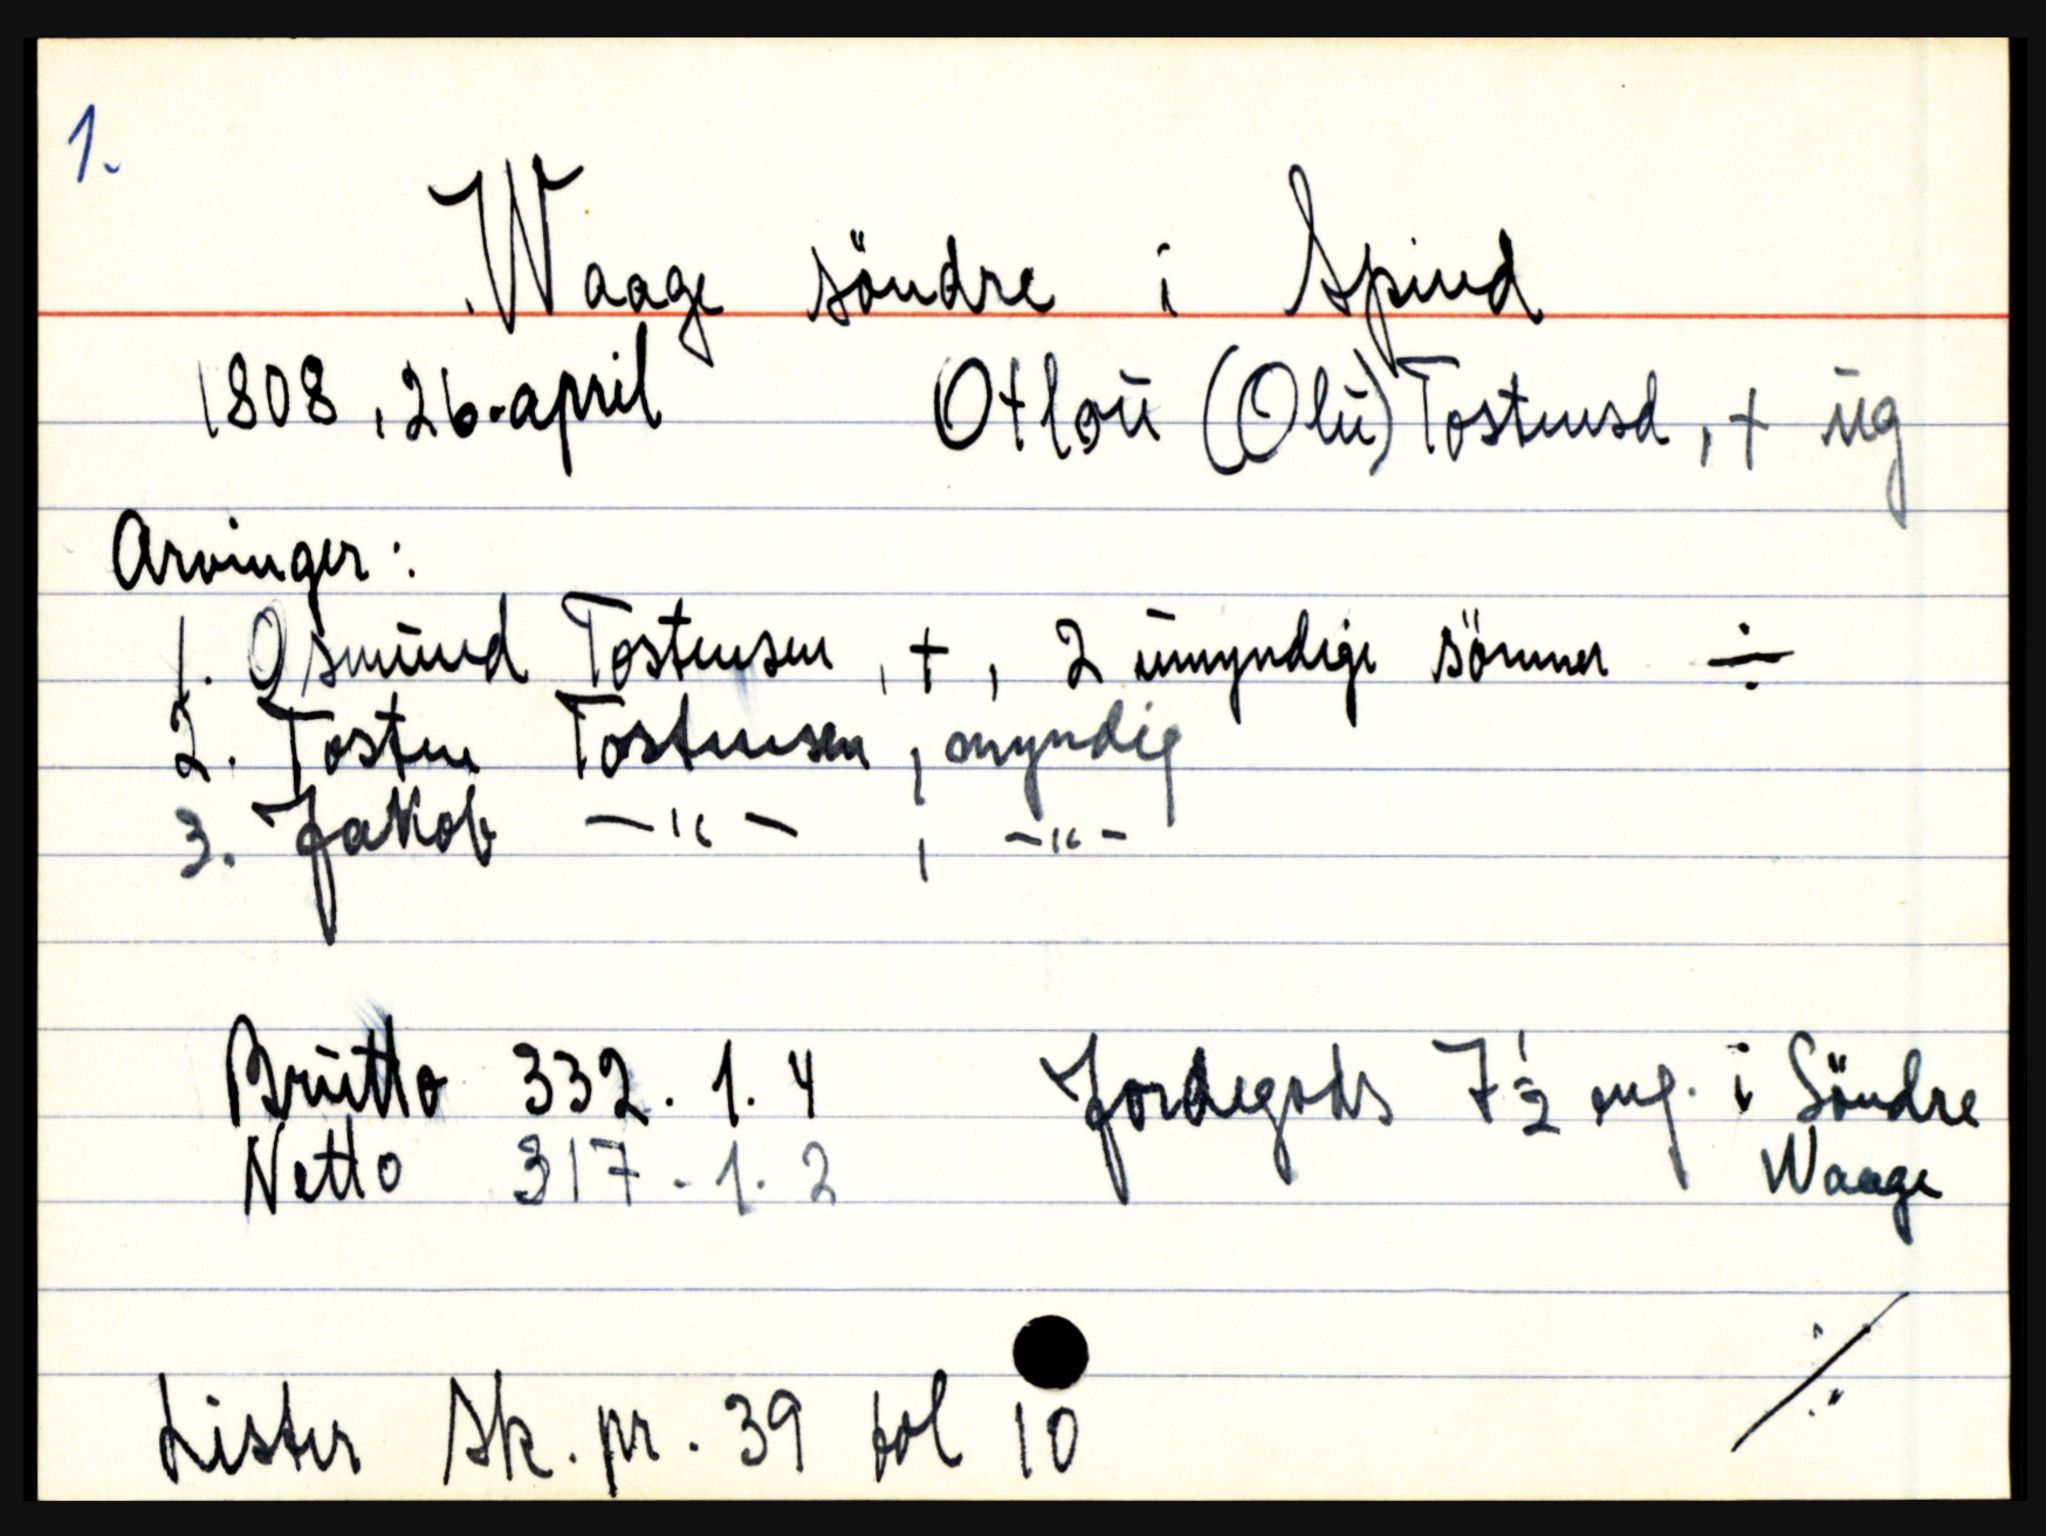 1.
Waage söndre i Spind
1808, 26. april Otlou (Olu) Tostensd, + ug
Arvinger:
1. Osmund Tostensen, +, 2 umyndige sönner ÷
2. Tosten Tostensen, myndig
3. Jakob —"— , —"—
Brutto 332. 1. 4 Jordegods 7 1/2 eng. i Söndre
Netto 317. 1. 2 Waage
Lister sk. pr. 39 fol 10 ÷